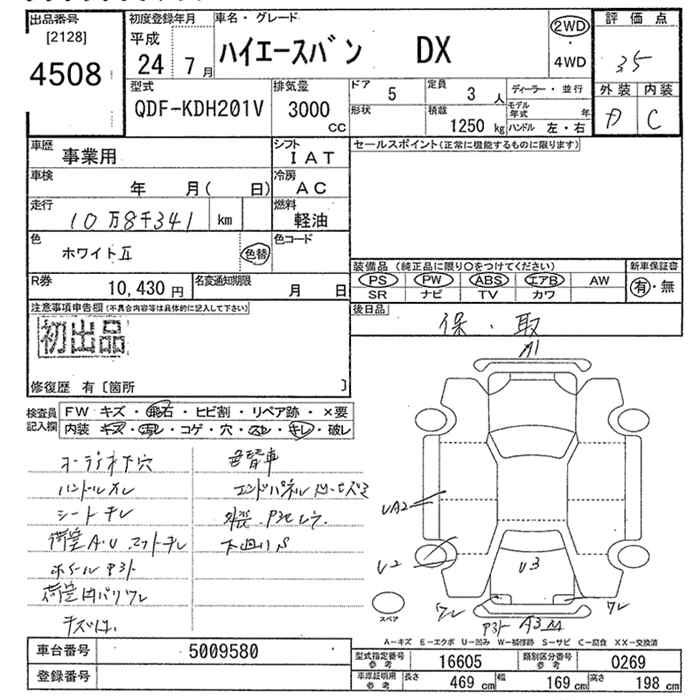 出品番号 初度登録年月 車名・グレード 2WD 評価点
[2128] 平成 ・ 3.5
4508 24 7月 ハイエースバン DX 4WD
外装 内装
型式 排気量 ドア 5 定員 3人 ディーラー・並行
QDF-KDH201V 3000 cc 形状 積載 1250 kg モデル年式 年 C
ハンドル 左・右
車歴 事業用 シフト IAT セールスポイント(正常に機能するものに限ります)
車検 年 月( 日) 冷房 AC
走行 10万8千341 km 燃料 軽油
色 ホワイトⅡ 色替 色コード
装備品(純正品に限り○をつけてください) 新車保証書
PS PW ABS エアB AW 有・無
SR ナビ TV カワ
R券 10,430円 名変通知期限 月 日
後日品 保・取
注意事項申告欄(不具合内容等は具体的に記入して下さい)
初出品
修復歴 有〔箇所 〕
検査員記入欄 FW キズ・飛石・ヒビ割・リペア跡・×要
内装 キズ・汚レ・コゲ・穴・スレ・キレ・破レ
オーディオ下穴 色替車
ハンドルスレ
シートキレ
下廻りS
A1
UA2
U2
U3
ワレ
ワレ
スペア
A-キズ E-エクボ U-凹み W-補修跡 S-サビ C-腐食 XX-交換済
車台番号 5009580 型式指定番号 参考 16605 類別区分番号 参考 0269
登録番号 車庫証明用 参考 長さ 469 cm 幅 169 cm 高さ 198 cm